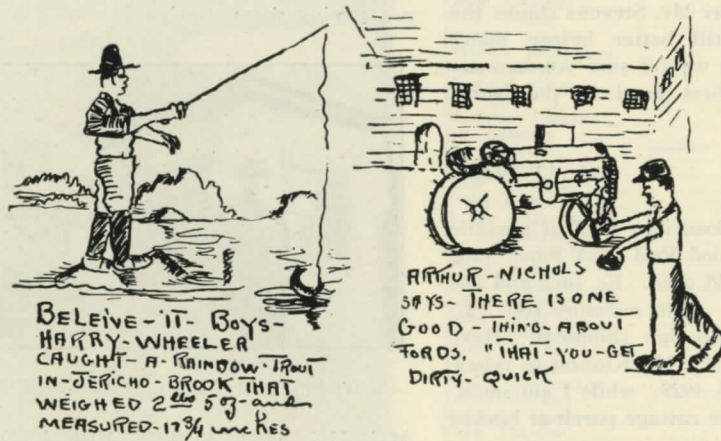 BELEIVE-IT-BOYS-
HARRY-WHEELER
CAUGHT-A-RAINBOW-TROUT
IN-JERICHO-BROOK THAT
WEIGHED 2 lbs 5 oz-and
MEASURED-17 3/4 inches
ARTHUR-NICHOLS
SAYS-THERE IS ONE
GOOD-THING-ABOUT
FORDS, "THAT-YOU-GET
DIRTY-QUICK